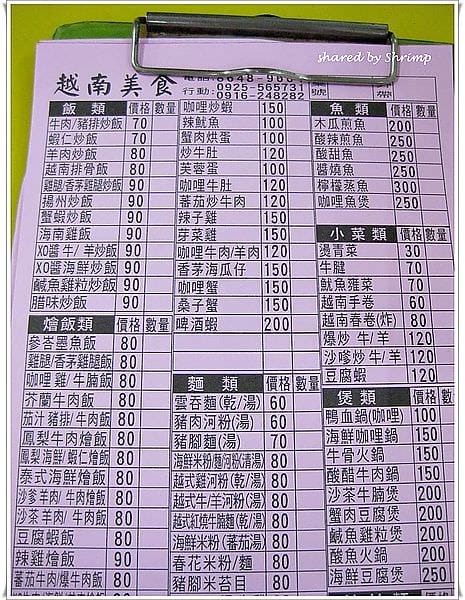 shared by Shrimp
越南美食
行動:0925-565731
0916-248282
飯類 價格 數量
牛肉/豬排炒飯 70
蝦仁炒飯 70
羊肉炒飯 80
越南排骨飯 80
雞腿/香茅雞腿炒飯 90
揚州炒飯 90
蟹蝦炒飯 90
海南雞飯 90
XO醬牛/羊炒飯 90
XO醬海鮮炒飯 90
鹹魚雞粒炒飯 90
腊味炒飯 90
燴飯類 價格 數量
參峇墨魚飯 80
雞腿/香茅雞飯 80
咖哩雞/牛腩飯 80
芥蘭牛肉飯 80
茄汁豬排/牛肉飯 80
鳳梨牛肉燴飯 80
鳳梨海鮮/蝦仁燴飯 80
泰式海鮮燴飯 80
沙爹羊肉/牛肉燴飯 80
沙茶羊肉/牛肉飯 80
豆腐蝦飯 80
辣雞燴飯 90
蕃茄牛肉/爆牛肉飯 80
咖哩炒蝦 150
辣魷魚 100
蟹肉烘蛋 100
炒牛肚 120
芙蓉蛋 100
咖哩牛肚 120
蕃茄炒牛肉 120
辣子雞 150
芽菜雞 150
咖哩牛肉/羊肉 120
香茅海瓜仔 150
咖哩蟹 150
桑子蟹 150
啤酒蝦 200
麵類 價格 數量
雲吞麵(乾/湯) 60
豬肉河粉(湯) 60
豬腳麵(湯) 70
海鮮米粉/麵/河粉(清湯) 80
越式雞河粉(乾/湯) 80
越式牛/羊河粉(湯) 80
越式紅燒牛腩麵(乾/湯) 80
海鮮米粉(蕃茄湯) 80
春花米粉/麵 80
豬腳米苔目 80
魚類 價格 數量
木瓜煎魚 200
酸辣煎魚 250
酸甜魚 250
醬燒魚 250
檸檬蒸魚 300
咖哩魚煲 250
小菜類 價格 數量
燙青菜 30
牛腱 70
魷魚蕹菜 70
越南手卷 60
越南春卷(炸) 80
爆炒牛/羊 120
沙嗲炒牛/羊 120
豆腐蝦 120
煲類 價格 數量
鴨血鍋(咖哩) 100
海鮮咖哩鍋 150
牛骨火鍋 150
酸醋牛肉鍋 150
沙茶牛腩煲 200
蟹肉豆腐煲 200
鹹魚雞粒煲 200
酸魚火鍋 200
海鮮豆腐煲 250